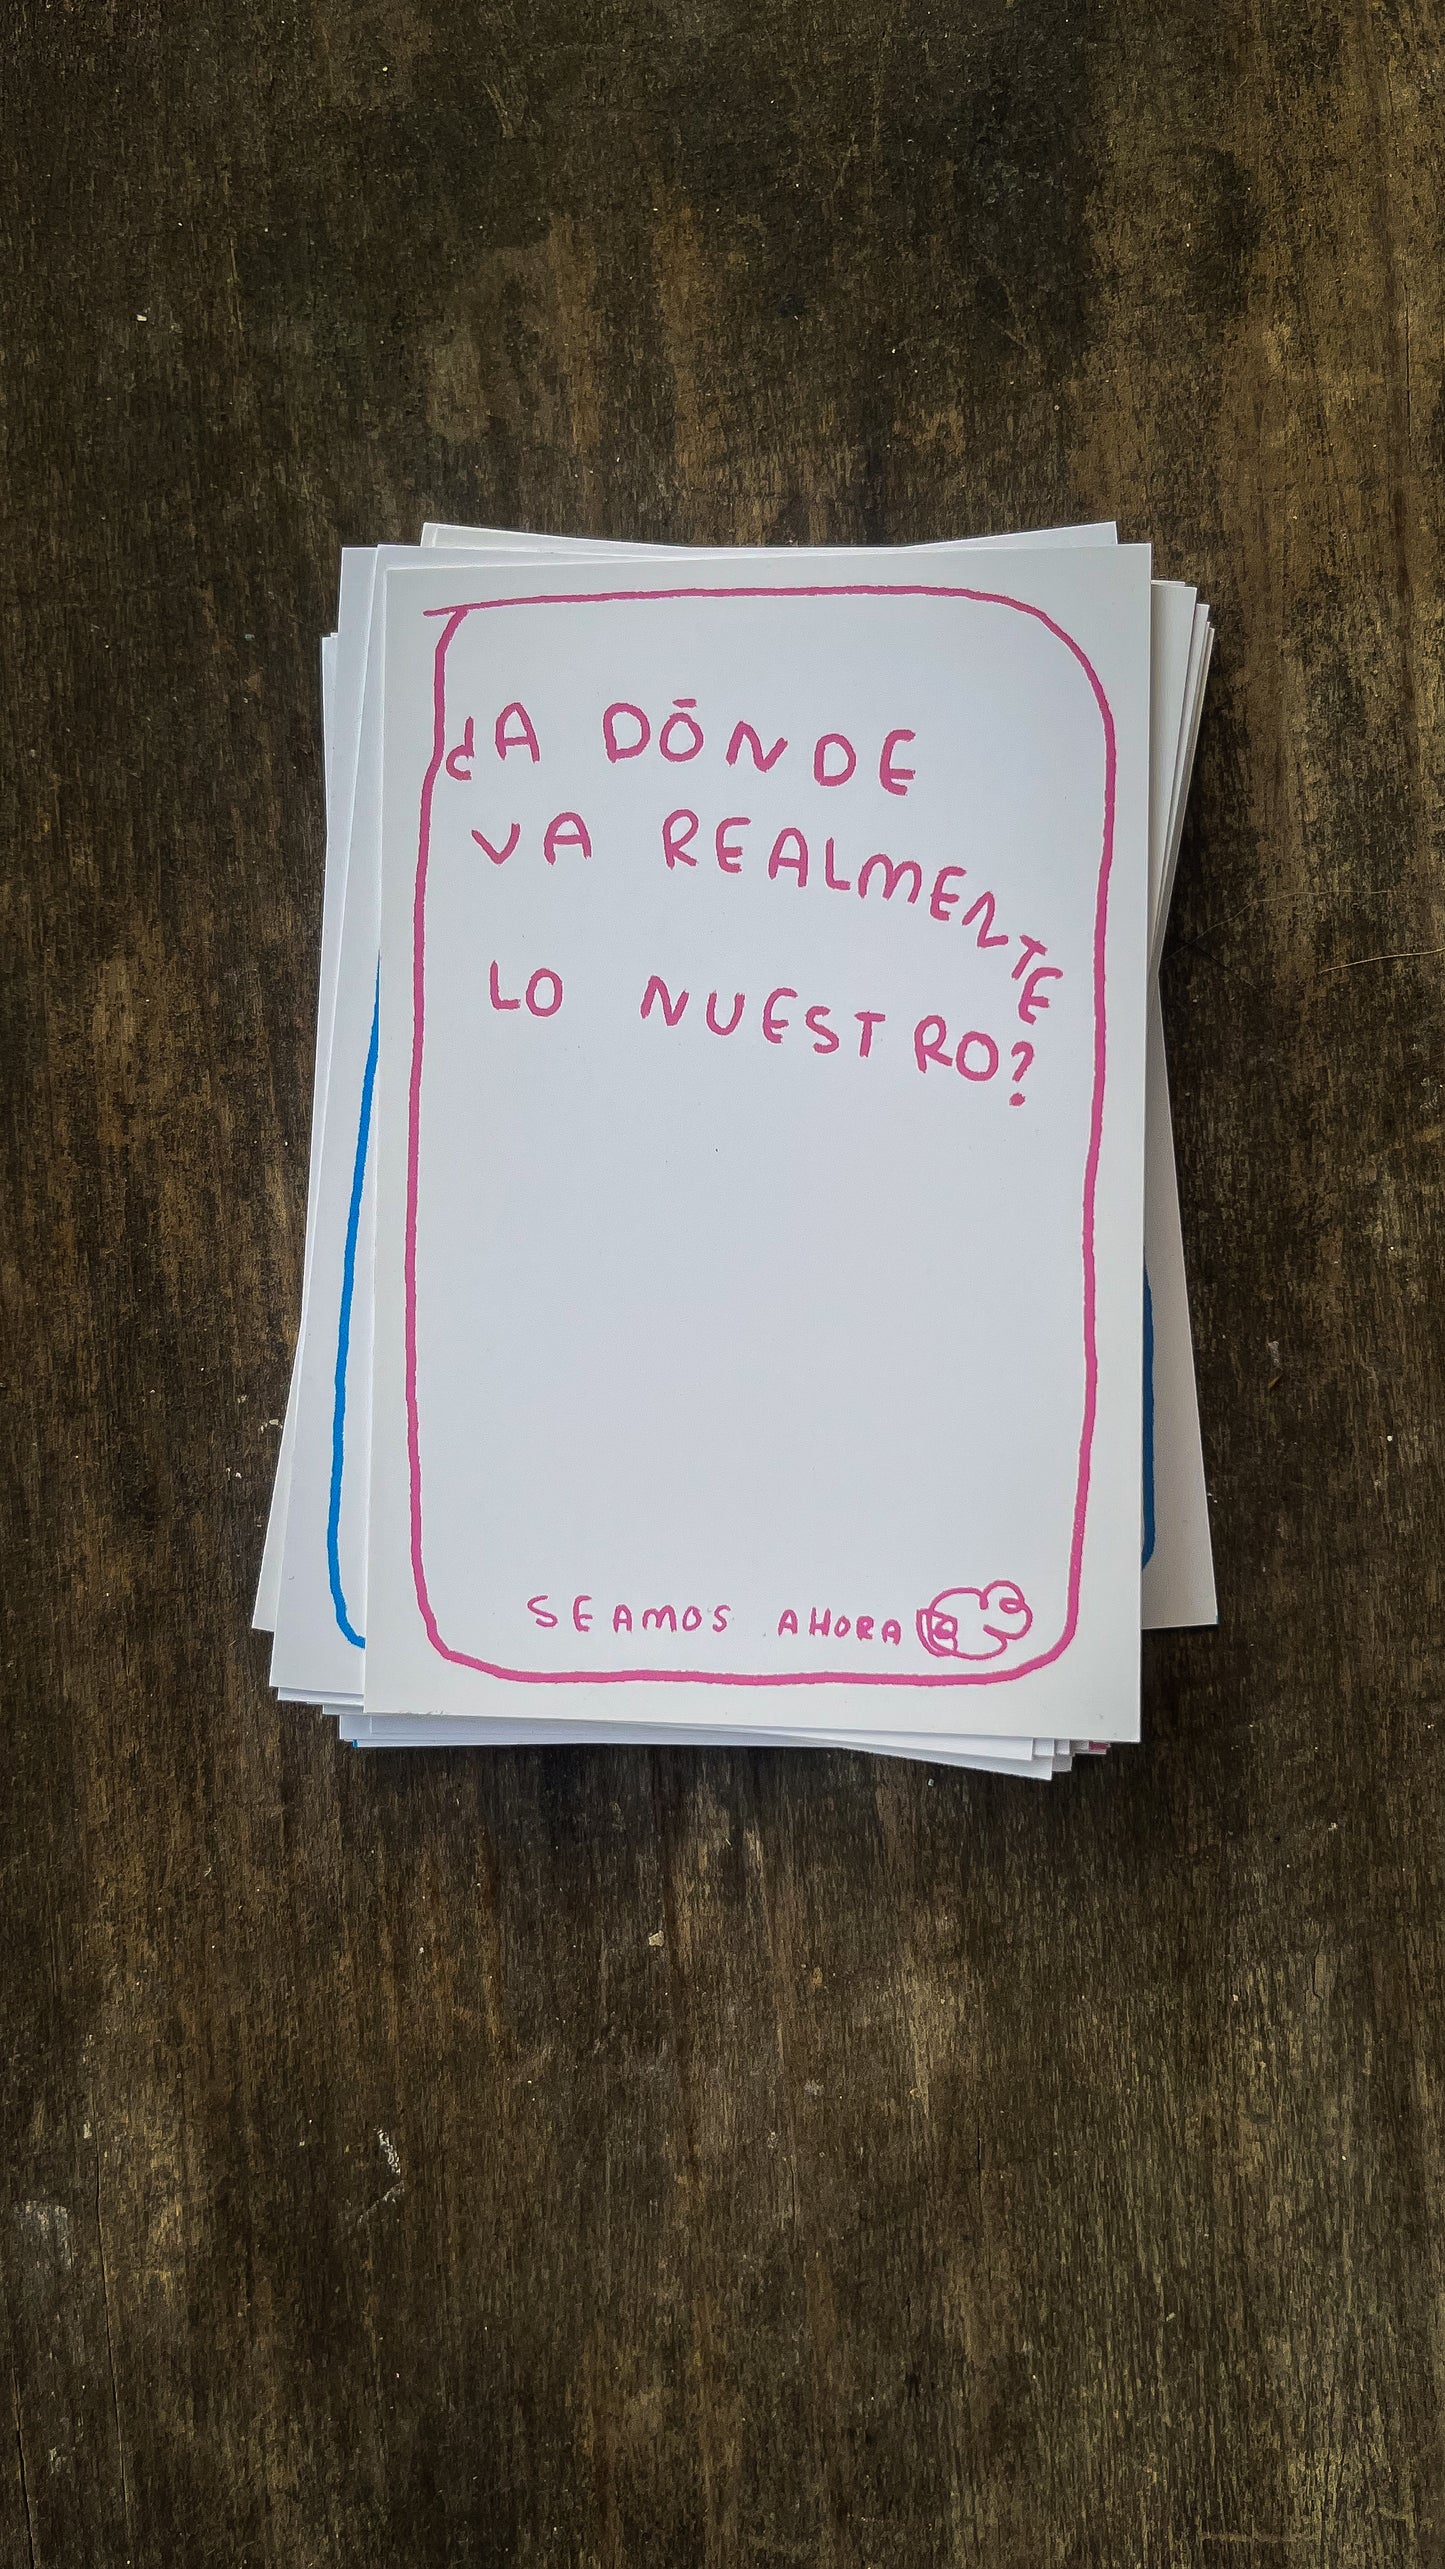 ¿A DÓNDE
VA REALMENTE
LO NUESTRO?
SEAMOS AHORA